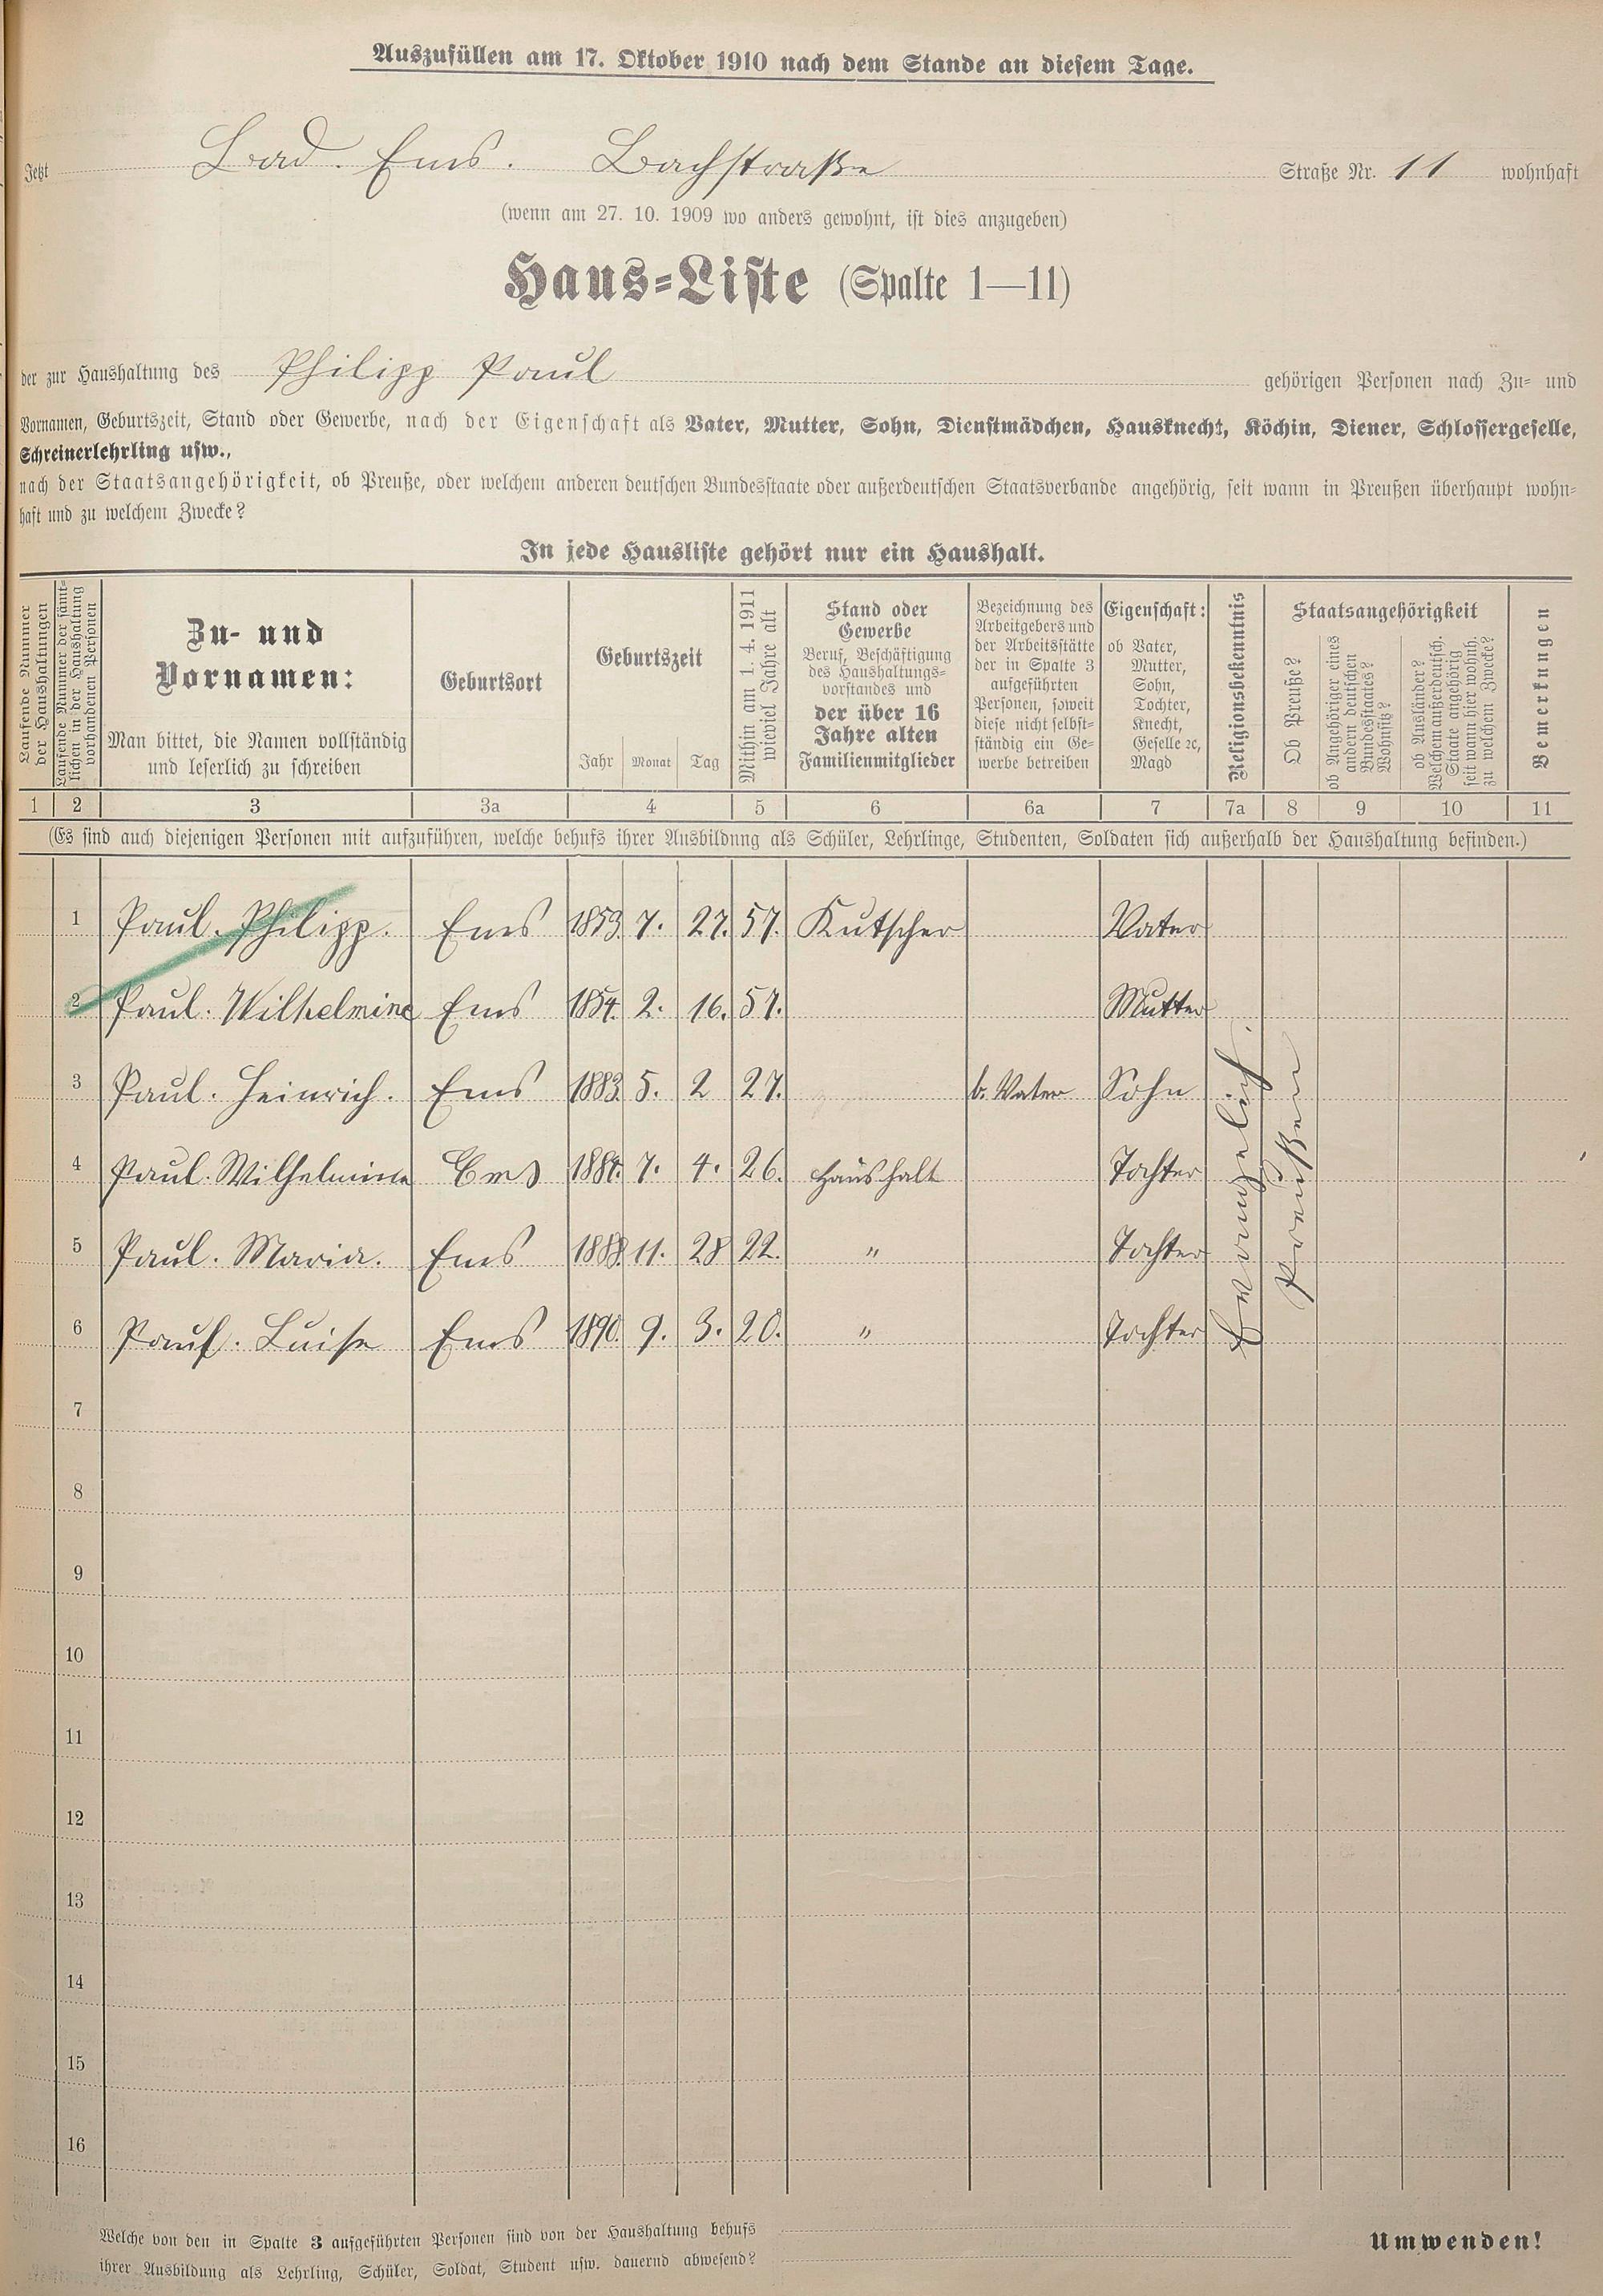 Auszufüllen am 17. Oktober 1910 nach dem Stande an diesem Tage.
Jetzt Bad. Ems. Bachstraße Straße Nr. 11 wohnhaft
(wenn am 27. 10. 1909 wo anders gewohnt, ist dies anzugeben)
Haus-Liste (Spalte 1—11)
der zur Haushaltung des Philipp Paul gehörigen Personen nach Zu- und
Vornamen, Geburtszeit, Stand oder Gewerbe, nach der Eigenschaft als Vater, Mutter, Sohn, Dienstmädchen, Hausknecht, Köchin, Diener, Schlossergeselle,
Schreinerlehrling usw.,
nach der Staatsangehörigkeit, ob Preuße, oder welchem anderen deutschen Bundesstaate oder außerdeutschen Staatsverbande angehörig, seit wann in Preußen überhaupt wohn-
haft und zu welchem Zwecke?
In jede Hausliste gehört nur ein Haushalt.
Laufende Nummer
der Haushaltungen
Laufende Nummer der sämt-
lichen in der Haushaltung
vorhandenen Personen
Zu- und
Vornamen:
Man bittet, die Namen vollständig
und leserlich zu schreiben
Geburtsort
Geburtszeit
Jahr Monat Tag
Mithin am 1. 4. 1911
wieviel Jahre alt
Stand oder
Gewerbe
Beruf, Beschäftigung
des Haushaltungs-
vorstandes und
der über 16
Jahre alten
Familienmitglieder
Bezeichnung des
Arbeitgebers und
der Arbeitsstätte
der in Spalte 3
aufgeführten
Personen, soweit
diese nicht selbst-
ständig ein Ge-
werbe betreiben
Eigenschaft:
ob Vater,
Mutter,
Sohn,
Tochter,
Knecht,
Geselle ꝛc,
Magd
Religionsbekenntnis
Staatsangehörigkeit
Ob Preuße?
ob Angehöriger eines
andern deutschen
Bundesstaates?
Wohnsitz?
ob Ausländer?
Welchem außerdeutsch.
Staate angehörig
seit wann hier wohnh.
zu welchem Zwecke?
Bemerkungen
1 2 3 3a 4 5 6 6a 7 7a 8 9 10 11
(Es sind auch diejenigen Personen mit aufzuführen, welche behufs ihrer Ausbildung als Schüler, Lehrlinge, Studenten, Soldaten sich außerhalb der Haushaltung befinden.)
1 Paul. Philipp. Ems 1853. 7. 27. 57. Kutscher Vater
2 Paul. Wilhelmine Ems 1854. 2. 16. 57. Mutter
3 Paul. Heinrich. Ems 1883. 5. 2 27. b. Vater Sohn
4 Paul. Wilhelmine Ems 1884. 7. 4. 26. Haushalt Tochter
5 Paul. Maria. Ems 1888. 11. 28 22. " Tochter
6 Paul. Luise Ems 1890. 9. 3. 20. " Tochter
Evangelisch.
Preußen
7
8
9
10
11
12
13
14
15
16
Welche von den in Spalte 3 aufgeführten Personen sind von der Haushaltung behufs
ihrer Ausbildung als Lehrling, Schüler, Soldat, Student usw. dauernd abwesend?
Umwenden!